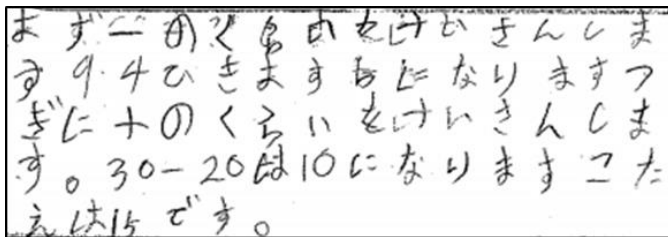 まず一のくらいをけいさんしま
す9-4ひきます5になりますつ
ぎに十のくらいをけいさんしま
す。30-20は10になりますこた
えは15です。